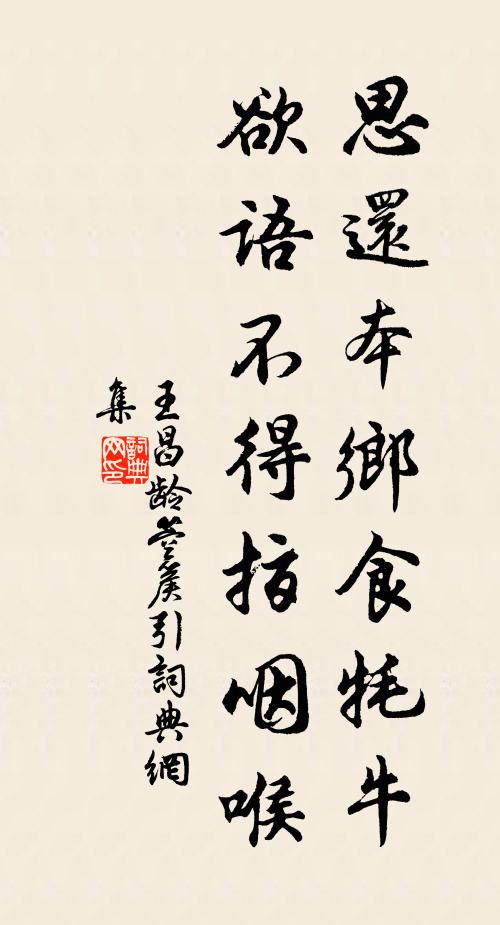 思還本鄉食牦牛
欲語不得指咽喉
王昌龄箜篌引詞典網
集
詞典
网印